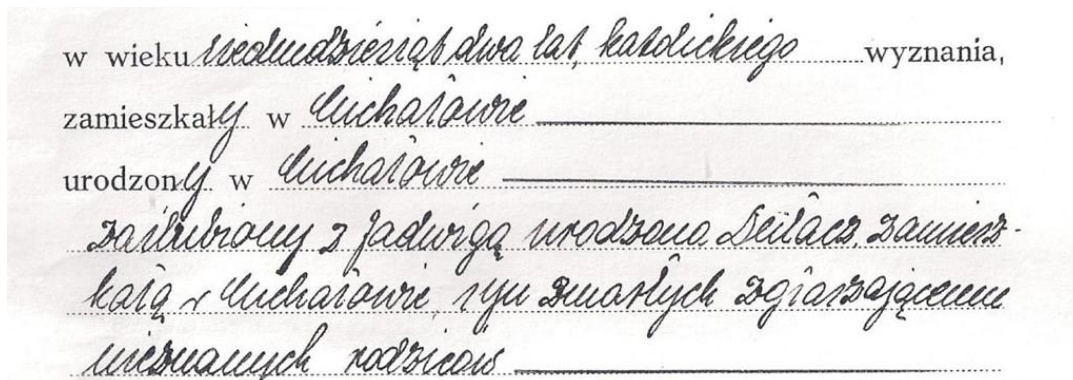 w wieku siedmdziesiąt dwa lat, katolickiego wyznania,
zamieszkały w Michałowie
urodzony w Michałowie
zaślubiony z Jadwigą urodzoną zamiesz-
kałą w Michałowie, syn zmarłych zgłaszającemu
nieznanych rodziców